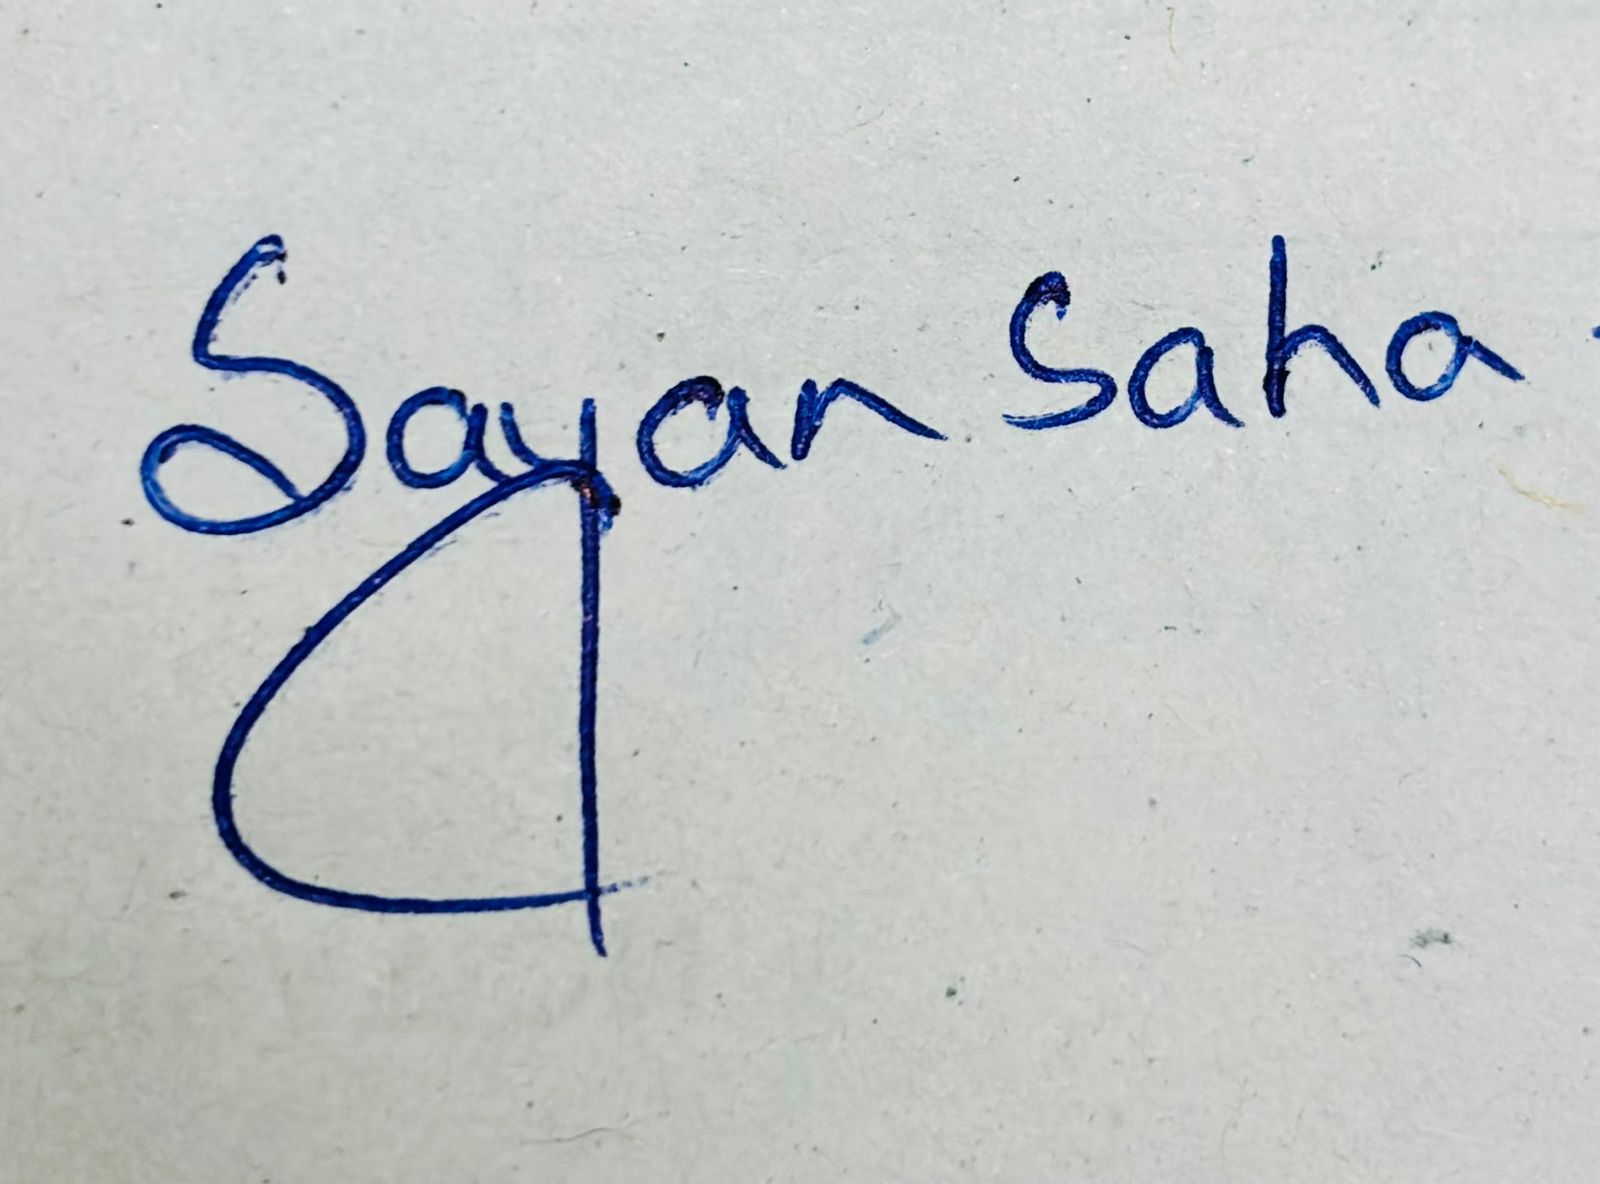 Sayan Saha